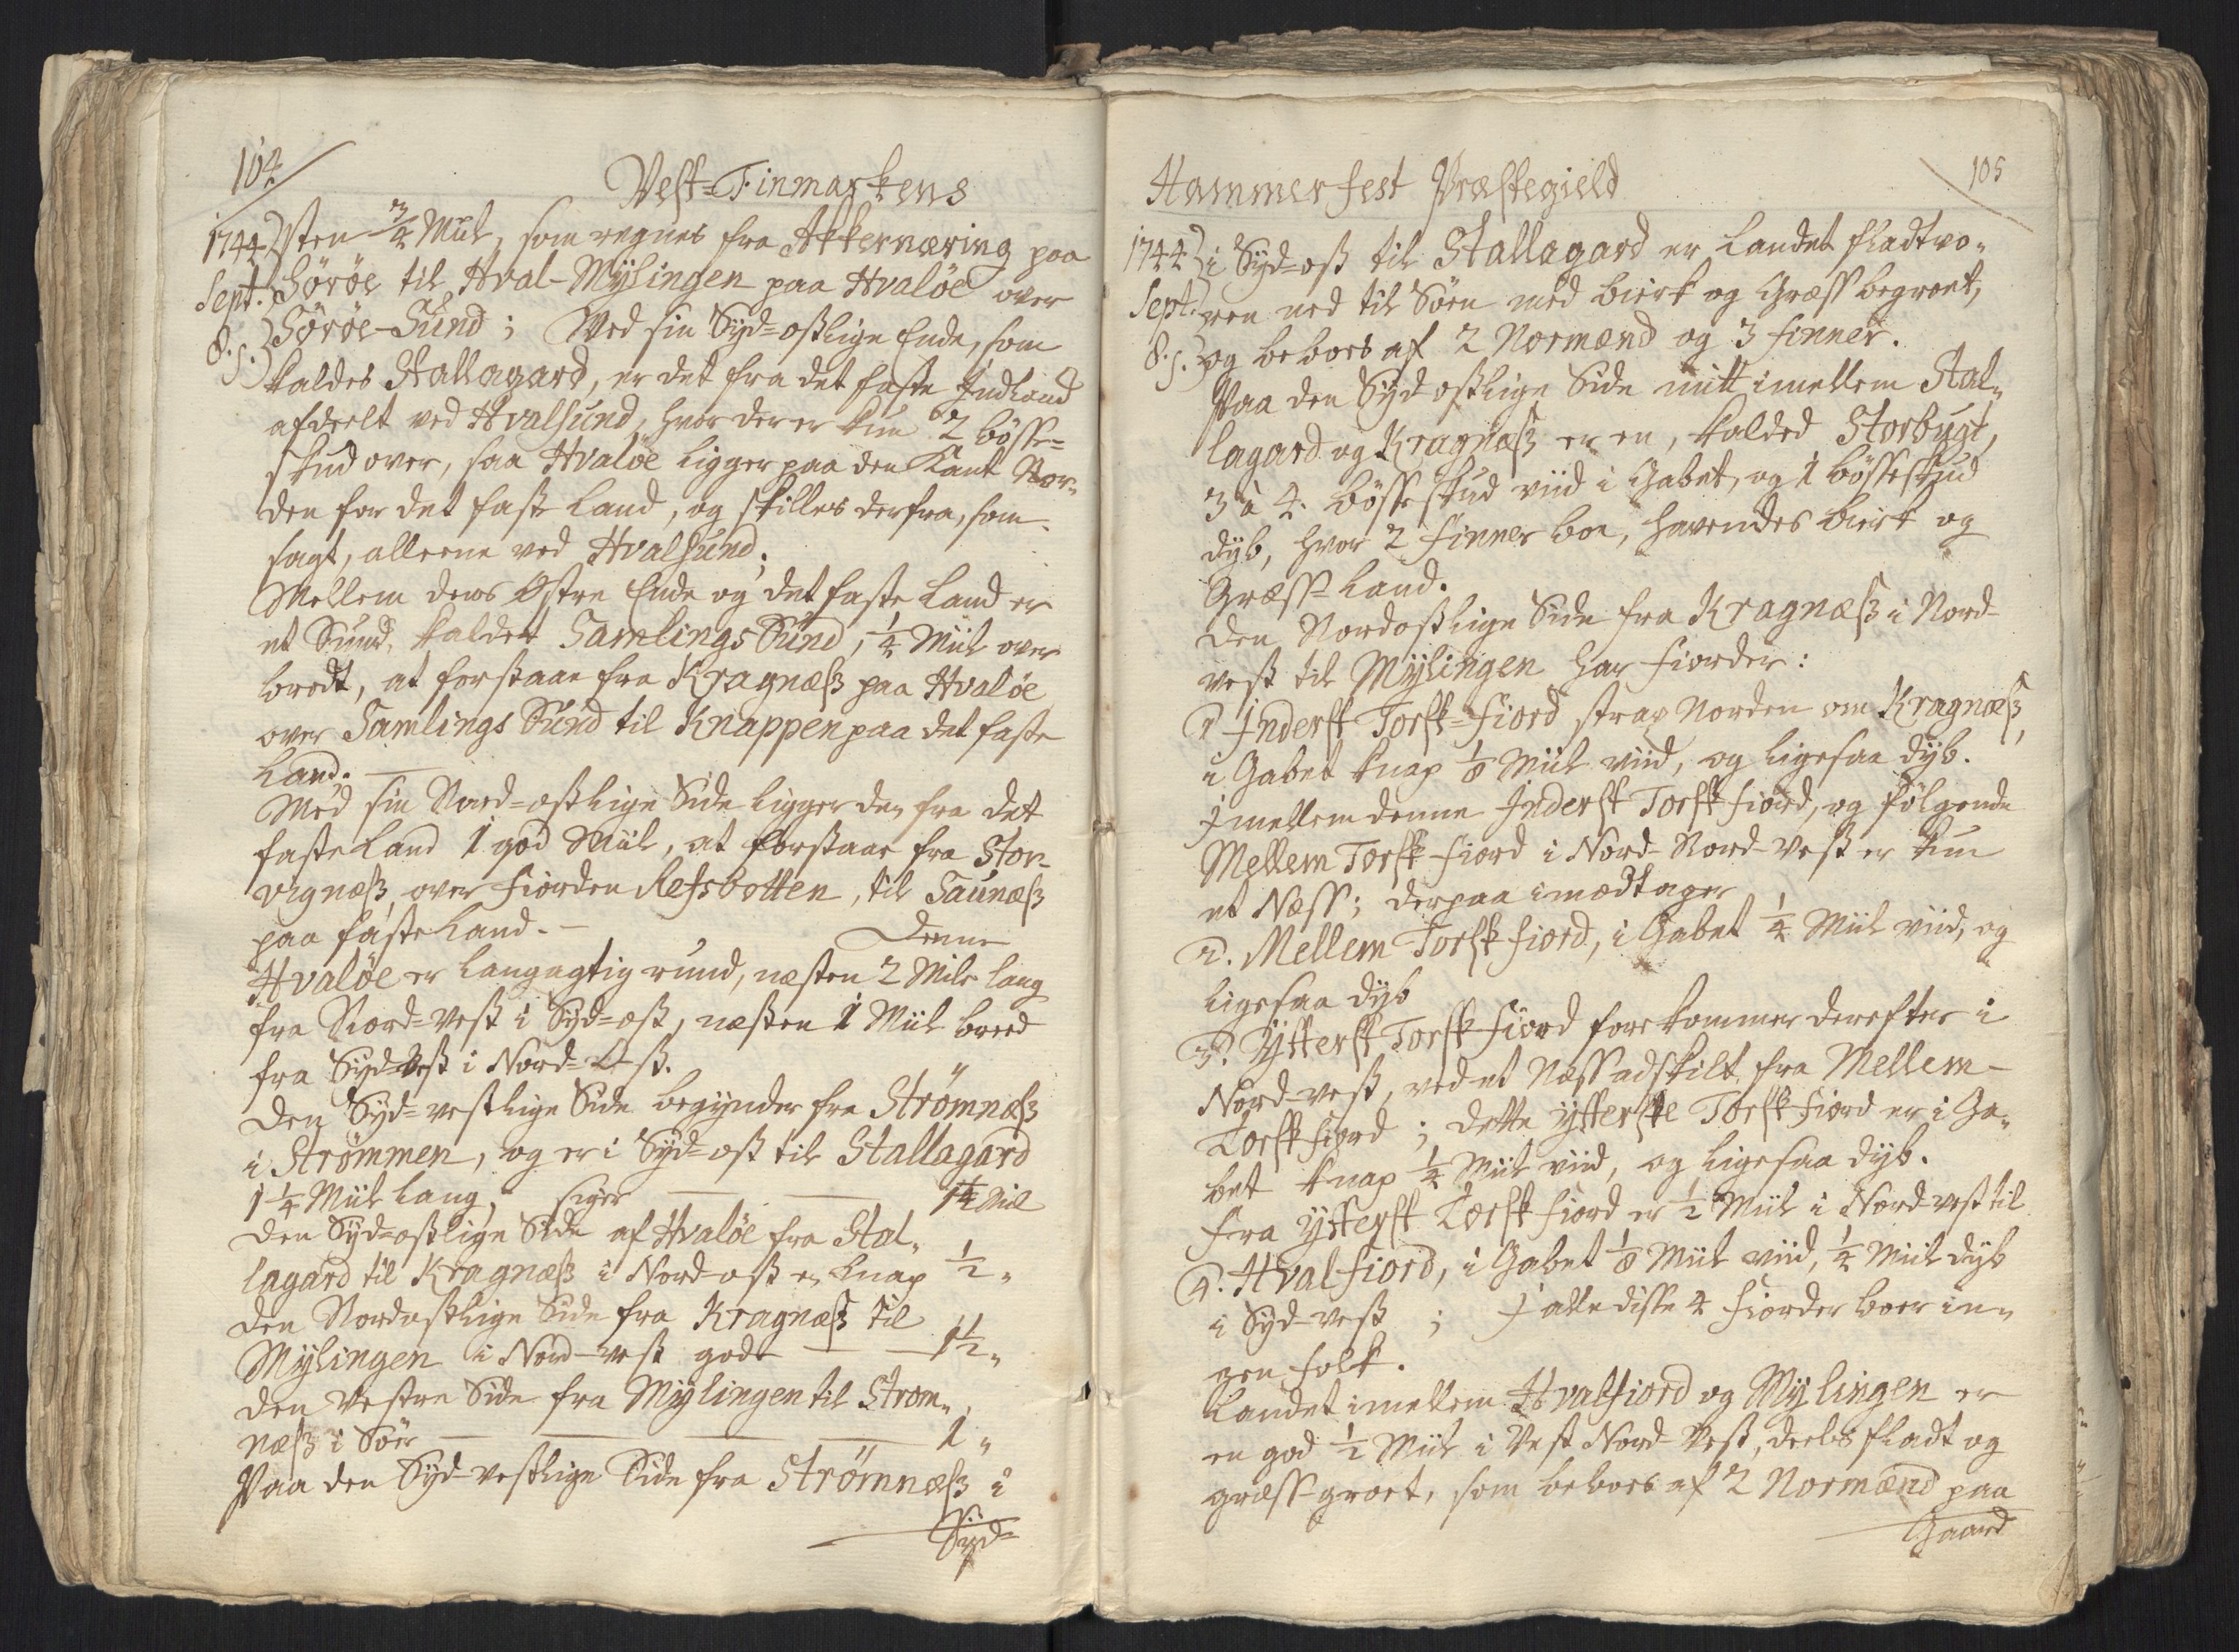 104
Vest-Finmarkens
1744) sten 3/4 Miil, som regnes fra Akkernæring paa
Sept.) Söröe til Hval-Mÿlingen paa Hvalöe over
8. s.) Söröe-Sund; Med sin Syd-ostlige Ende, som
kaldes Stallagard, er det fra det faste Indland
afdeelt ved Hvalsund, hvor der er kun 2 bösse-
skud over, saa Hvalöe ligger paa den Kant Nor-
den for det faste Land, og skilles derfra, som
sagt, alleene ved Hvalsund.
Mellem dens Östre Ende og det faste Land er
et Sund, kaldet Samlings Sund, 1/4 Miil over
bredt, at forstaae fra Kragnæss paa Hvalöe
over Samlings Sund til Knappen paa det faste
Land. —
Med sin Nord-ostlige Side ligger den fra det
faste Land 1 god Miil, at forstaae fra Stor-
vignæss, over Fiorden Refsbotten, til Taunæss
paa faste Land. — Denne
Hvalöe er langagtig rund, næsten 2 Mile lang
fra Nord-Vest i Syd-ost, næsten 1 Miil breed
fra Syd-Vest i Nord-Ost.
Den Syd-vestlige Side begynder fra Strömnæss
i Strömmen, og er i Syd-ost til Stallagard
1 1/4 Miil lang, siger — — 1 1/4 Miil
Den Syd-ostlige Side af Hvalöe fra Stal-
lagard til Kragnæss i Nord-ost er knap 1/2 "
Den Nordostlige Side fra Kragnæss til
Mÿlingen i Nord-Vest god — — 1 1/2 "
Den Vestre Side fra Mÿlingen til Strom-
næss i Söer — — — — 1 "
Paa den Syd-vestlige Side fra Strömnæss i
Syd-
Hammerfest Præstegield
105
1744) i Syd-ost til Stallagard er Landet fladtvo-
Sept.) ren ned til Söen med birk og Græss begroet,
8. s.) og beboes af 2 Normænd og 3 finner.
Paa den Sydostlige Side mitt imellem Stal-
lagard og Kragnæss er en, kalded Storbugt,
3 à 4. bösseskud viid i Gabet, og 1 bösseskud
dyb, hvor 2 Finner boe, havendes birk og
Græss-Land.
Den Nordostlige Side fra Kragnæss i Nord-
vest til Mÿlingen har Fiorder:
1 Inderst Torsk-Fiord strax Norden om Kragnæss,
i Gabet knap 1/8 Miil viid, og ligesaa dyb.
Imellem denne Inderst Torskfiord, og fölgende
Mellem Torsk-fiord i Nord-Nord-Vest er kun
et Næss; derpaa imodtager
2. Mellem Torskfiord, i Gabet 1/4 Miil viid, og
ligesaa dyb
3. Ytterst Torskfiord forekommer derefter i
Nord-vest, ved et Næss adskilt fra Mellem-
Torskfiord; dette ytterste Torskfiord er i Ga-
bet knap 1/4 Miil viid, og ligesaa dyb.
Fra Ytterst Torskfiord er 1/2 Miil i Nord-vest til
4. Hvalfiord, i Gabet 1/8 Miil viid, 1/4 Miil dyb
i Syd-vest; I alle disse 4 fiorder boer in-
gen folk.
Landet imellem Hvalfiord og Mÿlingen er
en god 1/2 Miil i Vest Nord-Vest, deels fladt og
græss-groet, som beboes af 2 Normænd paa
Gaard